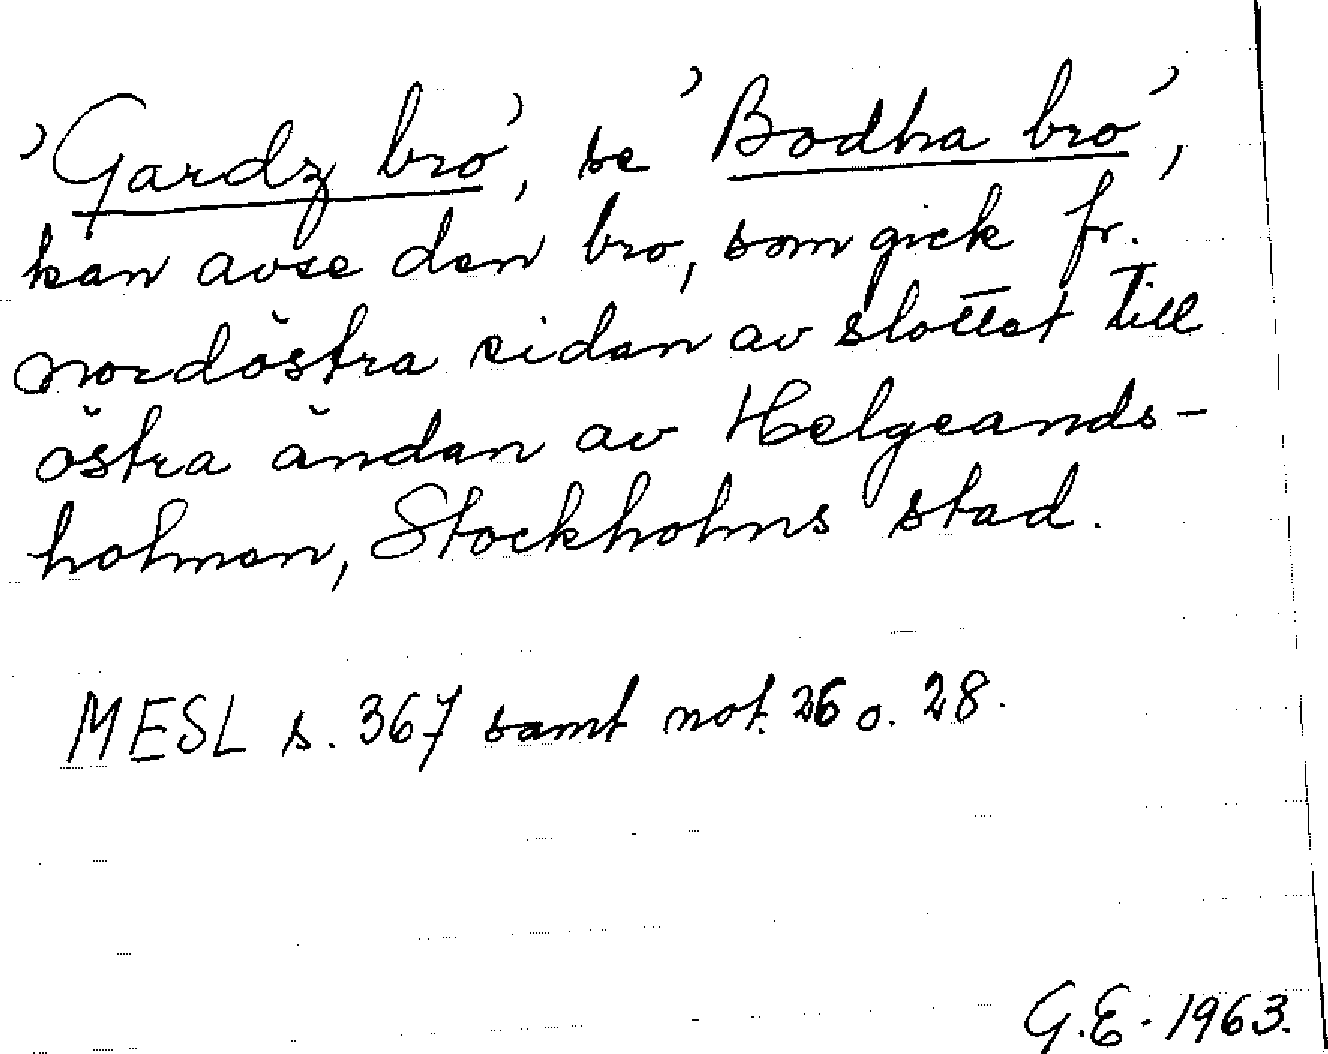 ’Gardz bro’, se ’Bodha bro’,
kan avse den bro, som gick fr.
nordöstra sidan av slottet till
östra ändan av Helgeands-
holmen, Stockholms stad.
MESL s. 367 samt not. 26 o. 28.
G.E. 1963.